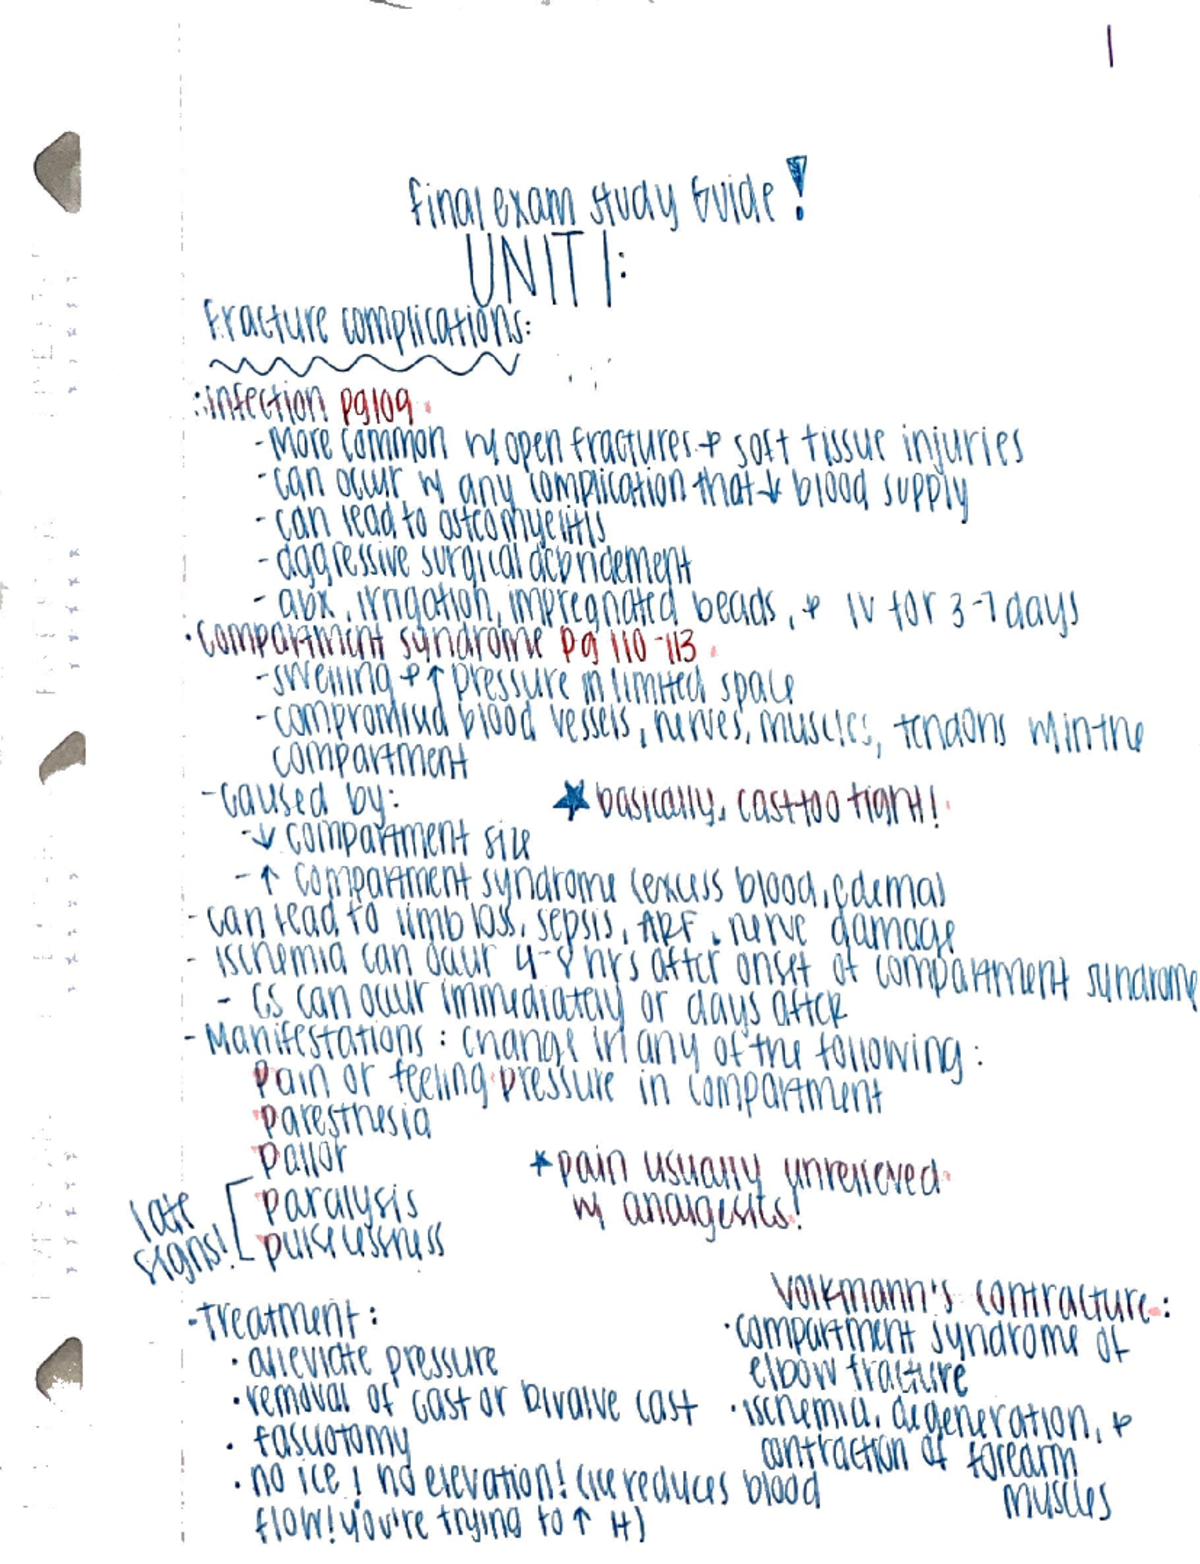 1
Final exam study Guide!
UNIT 1:
Fracture complications:
infection pg 109
- More common w/ open fractures + soft tissue injuries
- can occur w/ any complication that ↓ blood supply
- can lead to osteomyelitis
- aggressive surgical debridement
- abx, irrigation, impregnated beads, + IV for 3-7 days
• compartment syndrome pg 110-113
- swelling + ↑ pressure in limited space
- compromised blood vessels, nerves, muscles, tendons w/in the
compartment
- caused by:
★ basically, cast too tight!
- ↓ compartment size
- ↑ compartment syndrome (excess blood, edema)
- can lead to limb loss, sepsis, ARF, nerve damage
- ischemia can occur 4-8 hrs after onset of compartment syndrome
- CS can occur immediately or days after
- Manifestations: change in any of the following:
pain or feeling pressure in compartment
paresthesia
pallor
late
signs!
paralysis
pulselessness
★ pain usually unrelieved
w/ analgesics!
- Treatment:
• alleviate pressure
• removal of cast or bivalve cast
• fasciotomy
• no ice! no elevation! (ice reduces blood
flow! you're trying to ↑ it)
Volkmann's contracture:
• compartment syndrome of
elbow fracture
• ischemia, degeneration, +
contraction of forearm
muscles